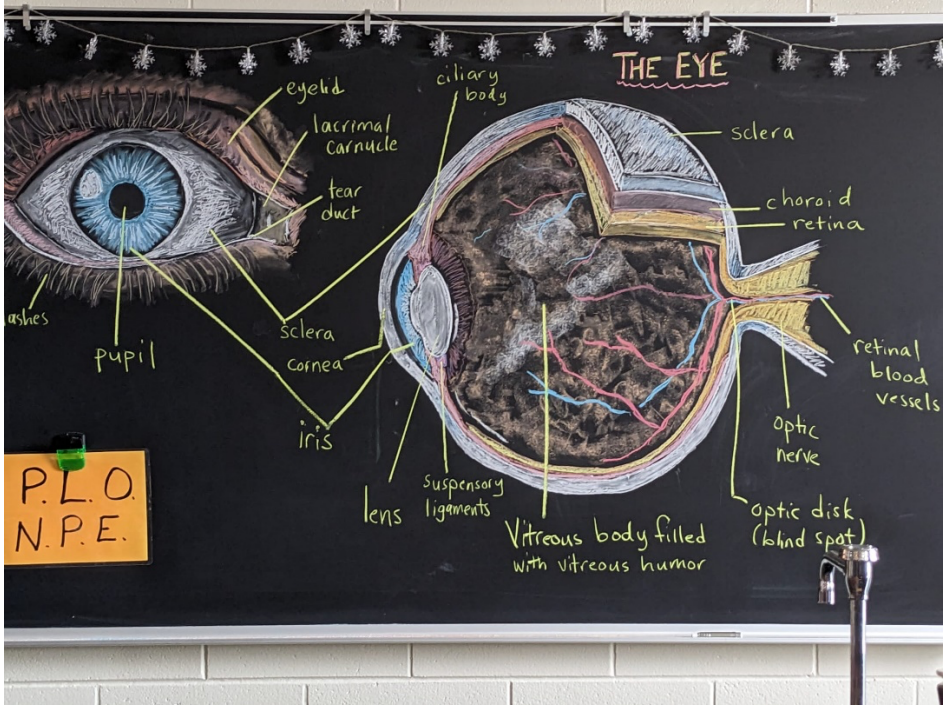 THE EYE
eyelid
lacrimal
carnucle
tear
duct
ciliary
body
sclera
choroid
retina
ashes
pupil
sclera
cornea
iris
lens
suspensory
ligaments
Vitreous body filled
with vitreous humor
retinal
blood
vessels
optic
nerve
optic disk
(blind spot)
P.L.O.
N.P.E.